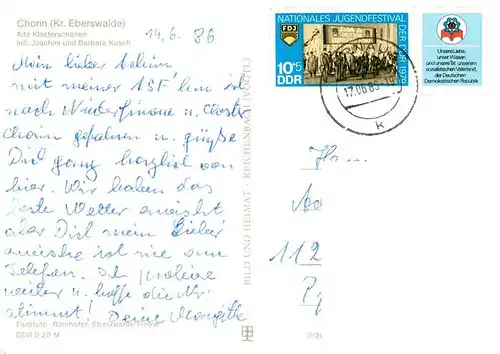 Chorin (Kr. Eberswalde)
Alte Klosterschänke
Inh. Joachim und Barbara Kusch
14.6. 86
Mein lieber
mit meiner
nach Niederfinow u. Kloster
Chorin gefahren u. grüße
Dich ganz herzlich von
hier. Wir haben das
beste Wetter erwischt
aber Dich mein Lieber
erwische ich nie am
Telefon. Ich probiere
weiter u. hoffe die Nr.
stimmt! Deine
Farbfoto: Eberswalde-Finow
DDR 0,20 M
BILD UND HEIMAT · REICHENBACH (VOGTL)
NATIONALES JUGENDFESTIVAL
DER DDR 1979
FDJ
10+5
DDR
Unsere Liebe,
unser Wissen
und unsere Tat unserem
sozialistischen Vaterland,
der Deutschen
Demokratischen Republik
K
112